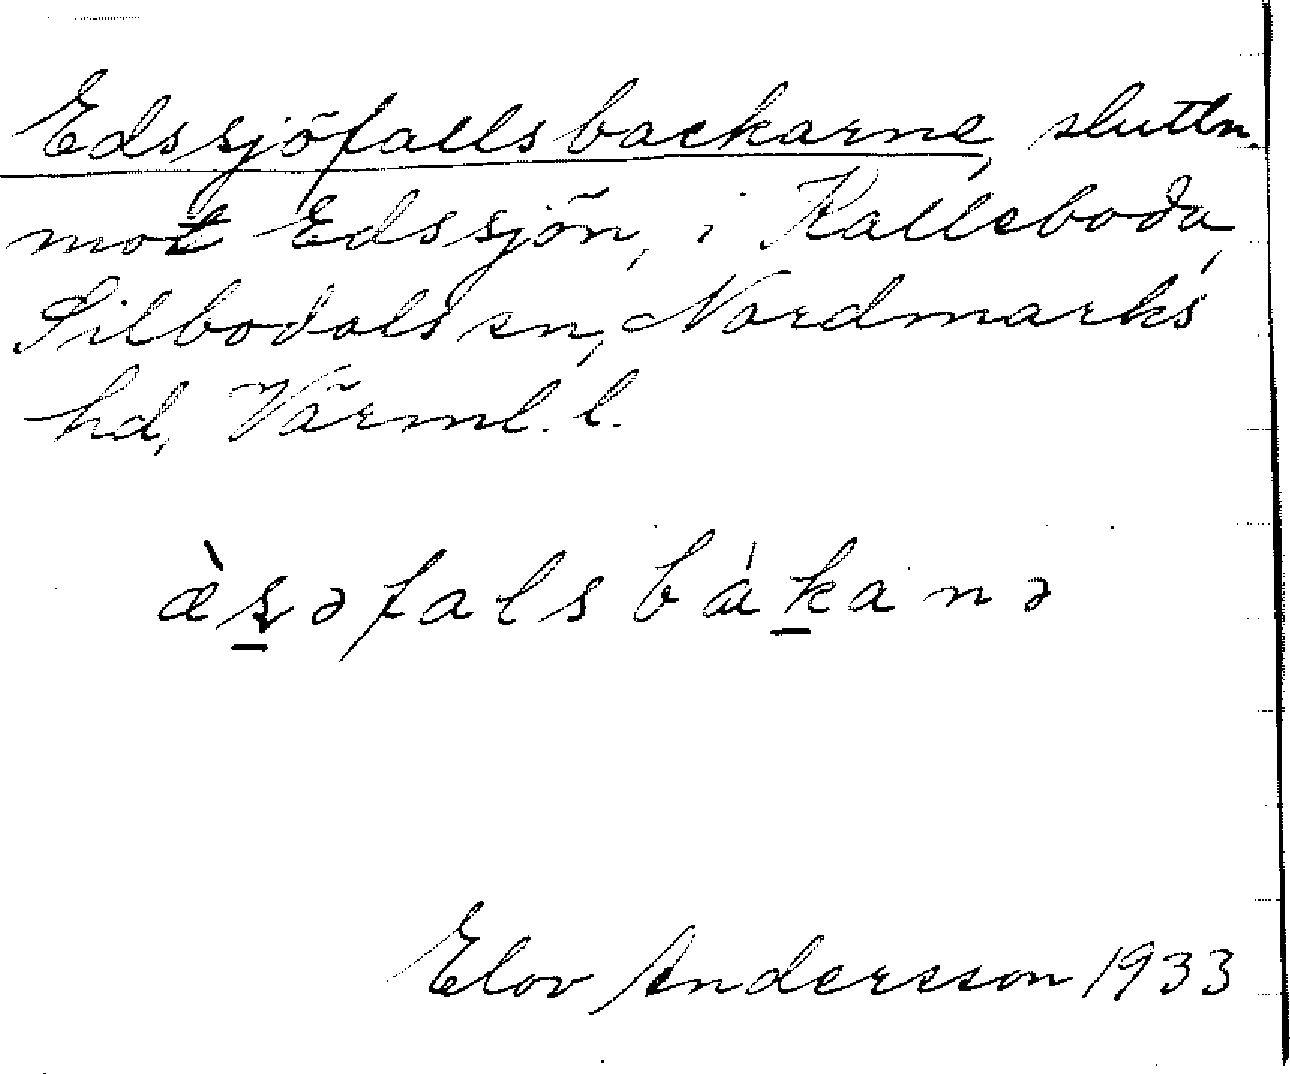 Edssjöfallsbackarne, sluttn.
mot Edssjön, i Kalleboda,
Silbodals sn, Nordmarks
hd, Värml. l.
æ̀s̠əfalsbák̠anə
Elov Andersson 1933